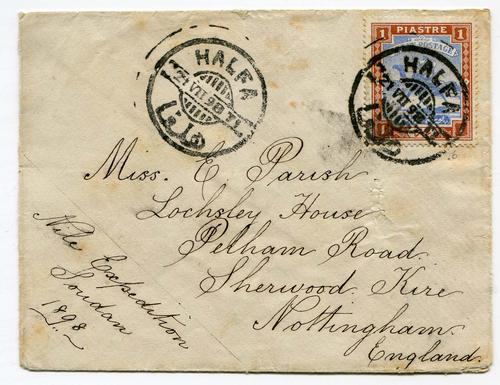 1 PIASTRE 1
POSTAGE
HALFA
21 VII 98
HALFA
21 VII 98
Miss. E Parish.
Lochsley House
Pelham Road.
Sherwood Kire
Nottingham.
England.
Nile Expedition
Soudan
1898